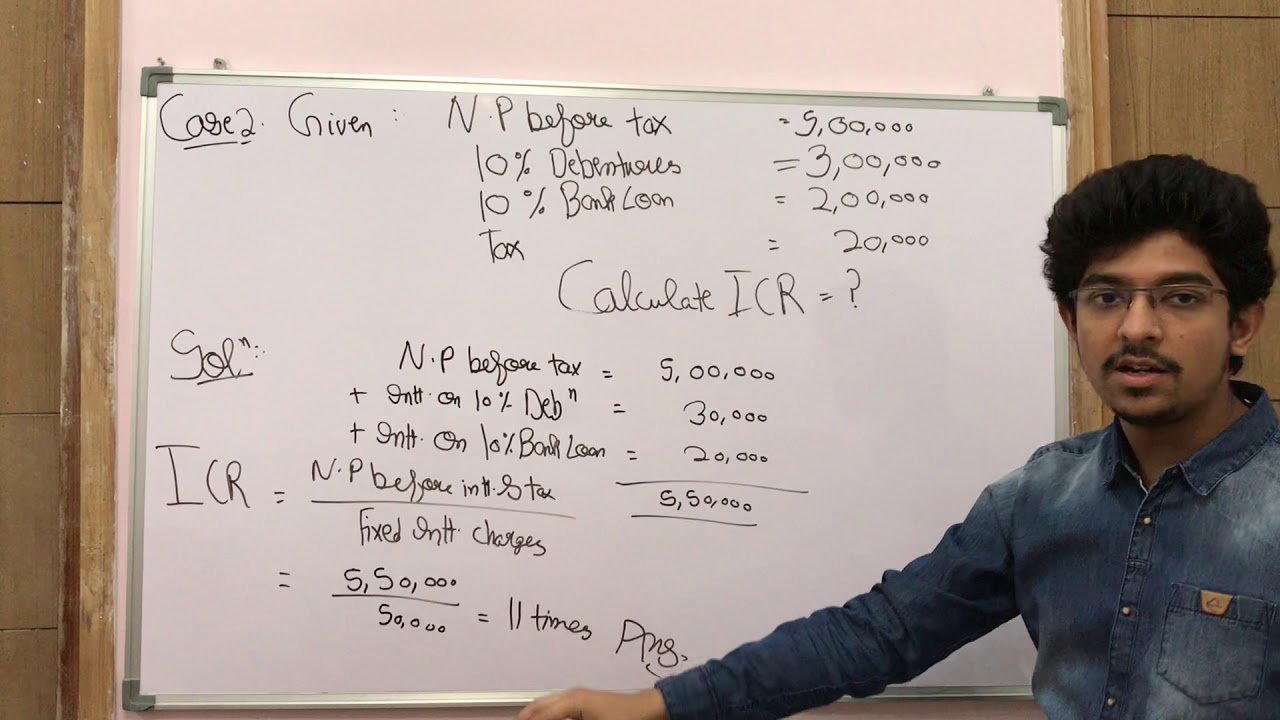 Case 2. Given : N.P before tax = 5,00,000
10% Debentures = 3,00,000
10% Bank Loan = 2,00,000
Tax = 20,000
Calculate ICR = ?
Solⁿ: N.P before tax = 5,00,000
+ Intt. on 10% Debⁿ = 30,000
+ Intt. on 10% Bank Loan = 20,000
5,50,000
ICR = N.P before intt. & tax
Fixed Intt. charges
= 5,50,000
50,000 = 11 times Ans.